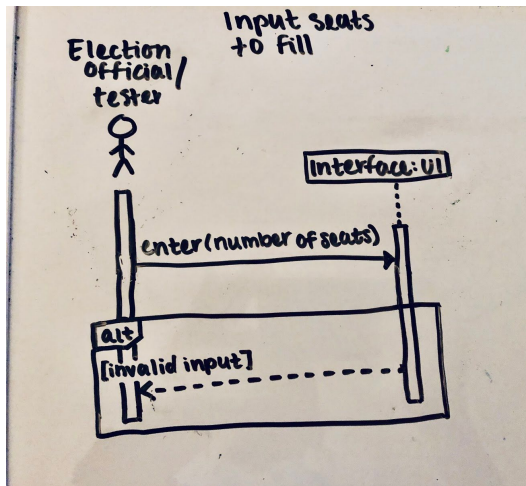 Input seats
to fill
Election
official/
tester
Interface:UI
enter(number of seats)
alt
[invalid input]